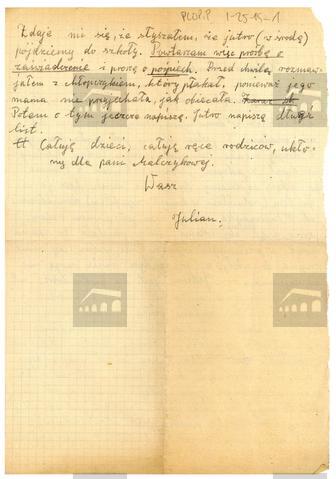 PLOP.P 1-25-15-1
Zdaje mi się, że słyszałem, że jutro (w środę)
pójdziemy do szkoły. Powtarzam więc prośbę o
zaświadczenie i proszę o pośpiech. Przed chwilą rozmaw-
jałem z chłopczykiem, który płakał, ponieważ jego
mama nie przyjechała, jak obiecała. Zaraz
Potem o tym jeszcze napiszę. Jutro napiszę dłuższy
list.
Całuję dzieci, całuję ręce rodziców, ukło-
ny dla pani Malczykowej.
Wasz
Julian.